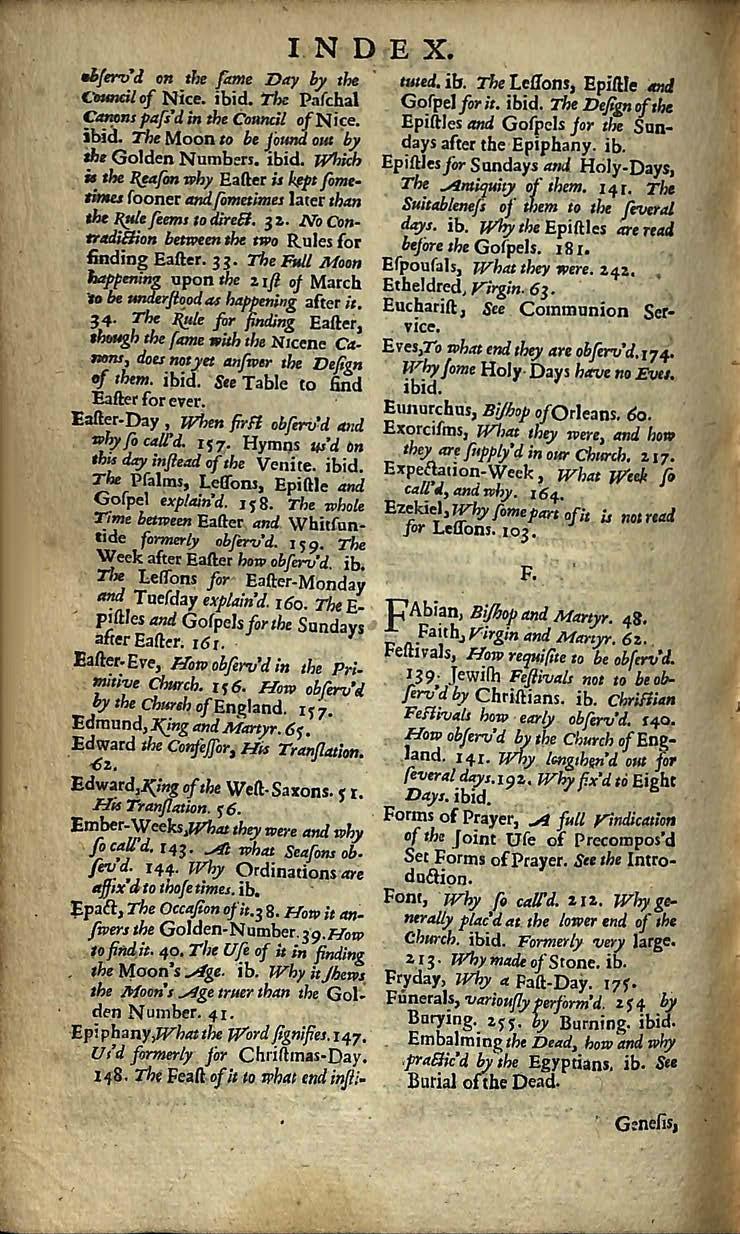 INDEX.
obſerv'd on the ſame Day by the
Council of Nice. ibid. The Paſchal
Canons paſs'd in the Council of Nice.
ibid. The Moon to be found out by
the Golden Numbers. ibid. Which
is the Reaſon why Eaſter is kept ſome-
times ſooner and ſometimes later than
the Rule ſeems to direct. 32. No Con-
tradiction between the two Rules for
finding Eaſter. 33. The Full Moon
happening upon the 21ſt of March
to be underſtood as happening after it.
34. The Rule for finding Eaſter,
though the ſame with the Nicene Ca-
nons, does not yet anſwer the Deſign
of them. ibid. See Table to find
Eaſter for ever.
Eaſter-Day, When firſt obſerv'd and
why ſo call'd. 157. Hymns us'd on
this day inſtead of the Venite. ibid.
The Pſalms, Leſſons, Epiſtle and
Goſpel explain'd. 158. The whole
Time between Eaſter and Whitſun-
tide formerly obſerv'd. 159. The
Week after Eaſter how obſerv'd. ib.
The Leſſons for Eaſter-Monday
and Tueſday explain'd. 160. The E-
piſtles and Goſpels for the Sundays
after Eaſter. 161.
Eaſter-Eve, How obſerv'd in the Pri-
mitive Church. 156. How obſerv'd
by the Church of England. 157.
Edmund, King and Martyr. 65.
Edward the Confeſſor, His Tranſlation.
62.
Edward, King of the Weſt-Saxons. 51.
His Tranſlation. 56.
Ember-Weeks, What they were and why
ſo call'd. 143. At what Seaſons ob-
ſev'd. 144. Why Ordinations are
affix'd to thoſe times. ib.
Epact, The Occaſion of it. 38. How it an-
ſwers the Golden-Number. 39. How
to find it. 40. The Uſe of it in finding
the Moon's Age. ib. Why it ſhews
the Moon's Age truer than the Gol-
den Number. 41.
Epiphany, What the Word ſignifies. 147.
Us'd formerly for Chriſtmas-Day.
148. The Feaſt of it to what end inſti-
tuted. ib. The Leſſons, Epiſtle and
Goſpel for it. ibid. The Deſign of the
Epiſtles and Goſpels for the Sun-
days after the Epiphany. ib.
Epiſtles for Sundays and Holy-Days,
The Antiquity of them. 141. The
Suitableneſs of them to the ſeveral
days. ib. Why the Epiſtles are read
before the Goſpels. 181.
Eſpouſals, What they were. 242.
Etheldred, Virgin. 63.
Euchariſt, See Communion Ser-
vice.
Eves, To what end they are obſerv'd. 174.
Why ſome Holy-Days have no Eves.
ibid.
Eunurchus, Biſhop of Orleans. 60.
Exorciſms, What they were, and how
they are ſupply'd in our Church. 217.
Expectation-Week, What Week ſo
call'd, and why. 164.
Ezekiel, Why ſome part of it is not read
for Leſſons. 103.
F.
FAbian, Biſhop and Martyr. 48.
Faith, Virgin and Martyr. 62.
Feſtivals, How requiſite to be obſerv'd.
139. Jewiſh Feſtivals not to be ob-
ſerv'd by Chriſtians. ib. Chriſtian
Feſtivals how early obſerv'd. 140.
How obſerv'd by the Church of Eng-
land. 141. Why lengthen'd out for
ſeveral days. 192. Why fix'd to Eight
Days. ibid.
Forms of Prayer, A full Vindication
of the Joint Uſe of Precompos'd
Set Forms of Prayer. See the Intro-
duction.
Font, Why ſo call'd. 212. Why ge-
nerally plac'd at the lower end of the
Church. ibid. Formerly very large.
213. Why made of Stone. ib.
Fryday, Why a Faſt-Day. 175.
Funerals, variouſly perform'd. 254 by
Burying. 255. by Burning. ibid.
Embalming the Dead, how and why
practic'd by the Egyptians. ib. See
Burial of the Dead.
Geneſis,